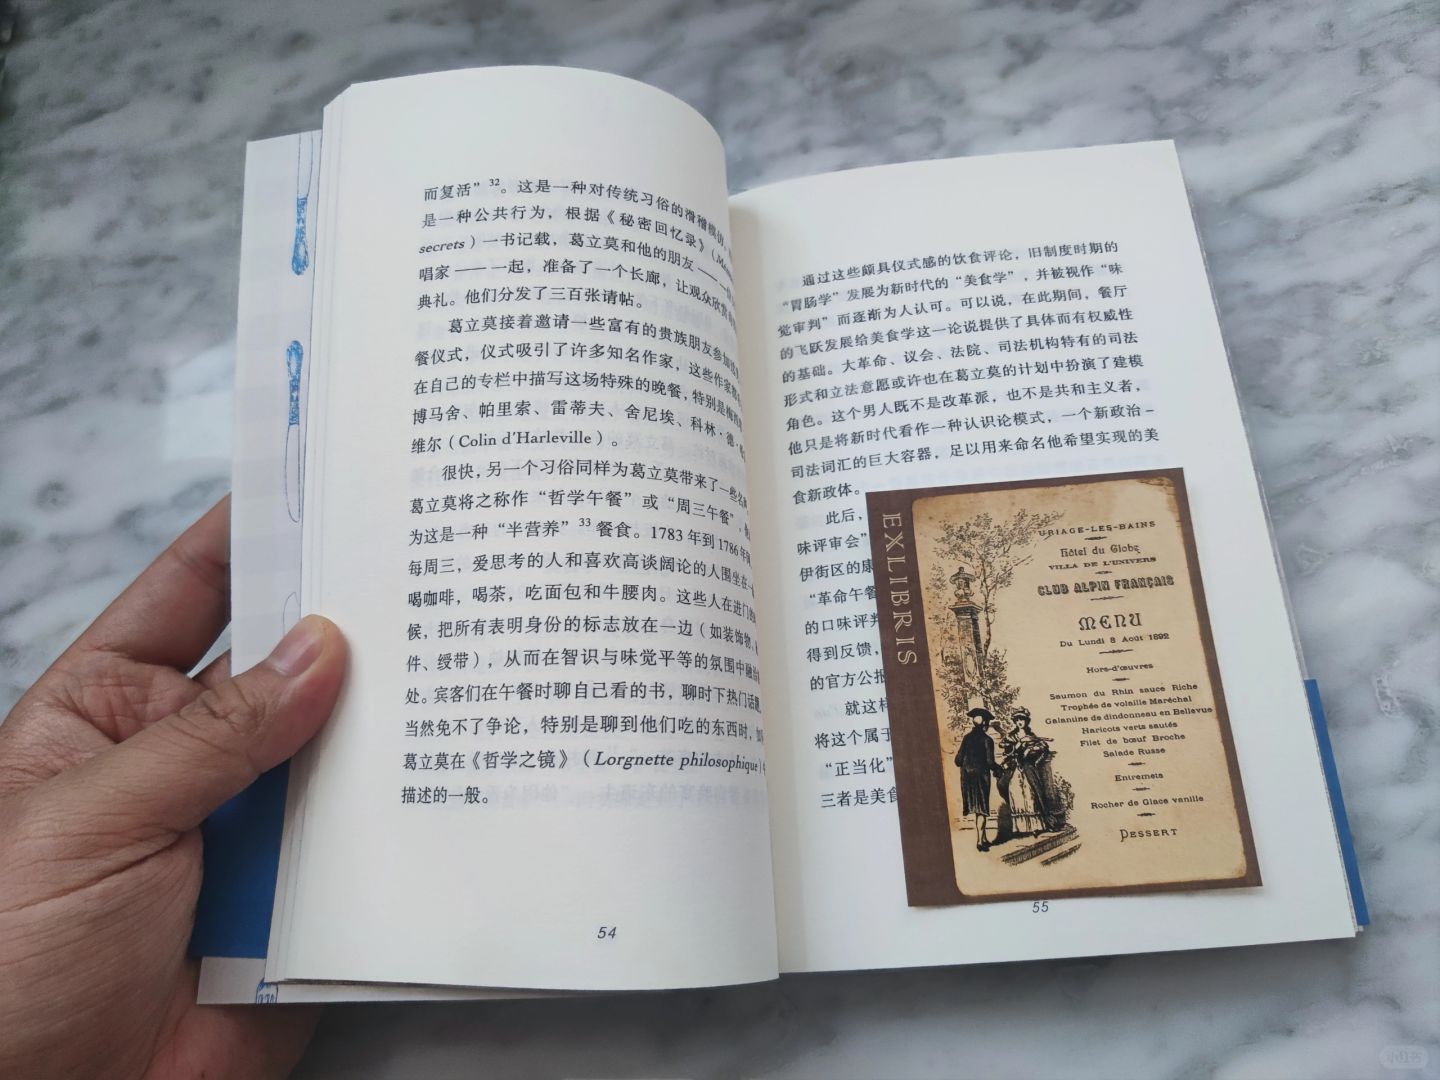 而复活”³²。这是一种对传统习俗的滑稽模仿
是一种公共行为，根据《秘密回忆录》（
secrets）一书记载，葛立莫和他的朋友——
唱家——一起，准备了一个长廊，让观众欣赏
典礼。他们分发了三百张请帖。
葛立莫接着邀请一些富有的贵族朋友参加
餐仪式，仪式吸引了许多知名作家，这些作家
在自己的专栏中描写这场特殊的晚餐，特别是
博马舍、帕里索、雷蒂夫、舍尼埃、科林·德·
维尔（Colin d'Harleville）。
很快，另一个习俗同样为葛立莫带来了一些名
葛立莫将之称作“哲学午餐”或“周三午餐”，
为这是一种“半营养”³³餐食。1783年到1786年
每周三，爱思考的人和喜欢高谈阔论的人围坐在一
喝咖啡，喝茶，吃面包和牛腰肉。这些人在进门的
候，把所有表明身份的标志放在一边（如装饰物、
件、绶带），从而在智识与味觉平等的氛围中融洽
处。宾客们在午餐时聊自己看的书，聊时下热门话题，
当然免不了争论，特别是聊到他们吃的东西时，
葛立莫在《哲学之镜》（Lorgnette philosophique）
描述的一般。
54
通过这些颇具仪式感的饮食评论，旧制度时期的
“胃肠学”发展为新时代的“美食学”，并被视作“味
觉审判”而逐渐为人认可。可以说，在此期间，餐厅
的飞跃发展给美食学这一论说提供了具体而有权威性
的基础。大革命、议会、法院、司法机构特有的司法
形式和立法意愿或许也在葛立莫的计划中扮演了建模
角色。这个男人既不是改革派，也不是共和主义者，
他只是将新时代看作一种认识论模式，一个新政治－
司法词汇的巨大容器，足以用来命名他希望实现的美
食新政体。
此后，
味评审会”
伊街区的康
“革命午餐
的口味评判
得到反馈，
的官方公报
就这样
将这个属于
“正当化”
三者是美食
55
EXLIBRIS
URIAGE-LES-BAINS
Hôtel du Globe
VILLA DE L'UNIVERS
CLUB ALPIN FRANÇAIS
MENU
Du Lundi 8 Août 1892
Hors-d'œuvres
Saumon du Rhin sauce Riche
Trophée de volaille Maréchal
Galantine de dindonneau en Bellevue
Haricots verts sautés
Filet de bœuf Broche
Salade Russe
Entremets
Rocher de Glace vanille
DESSERT
小红书